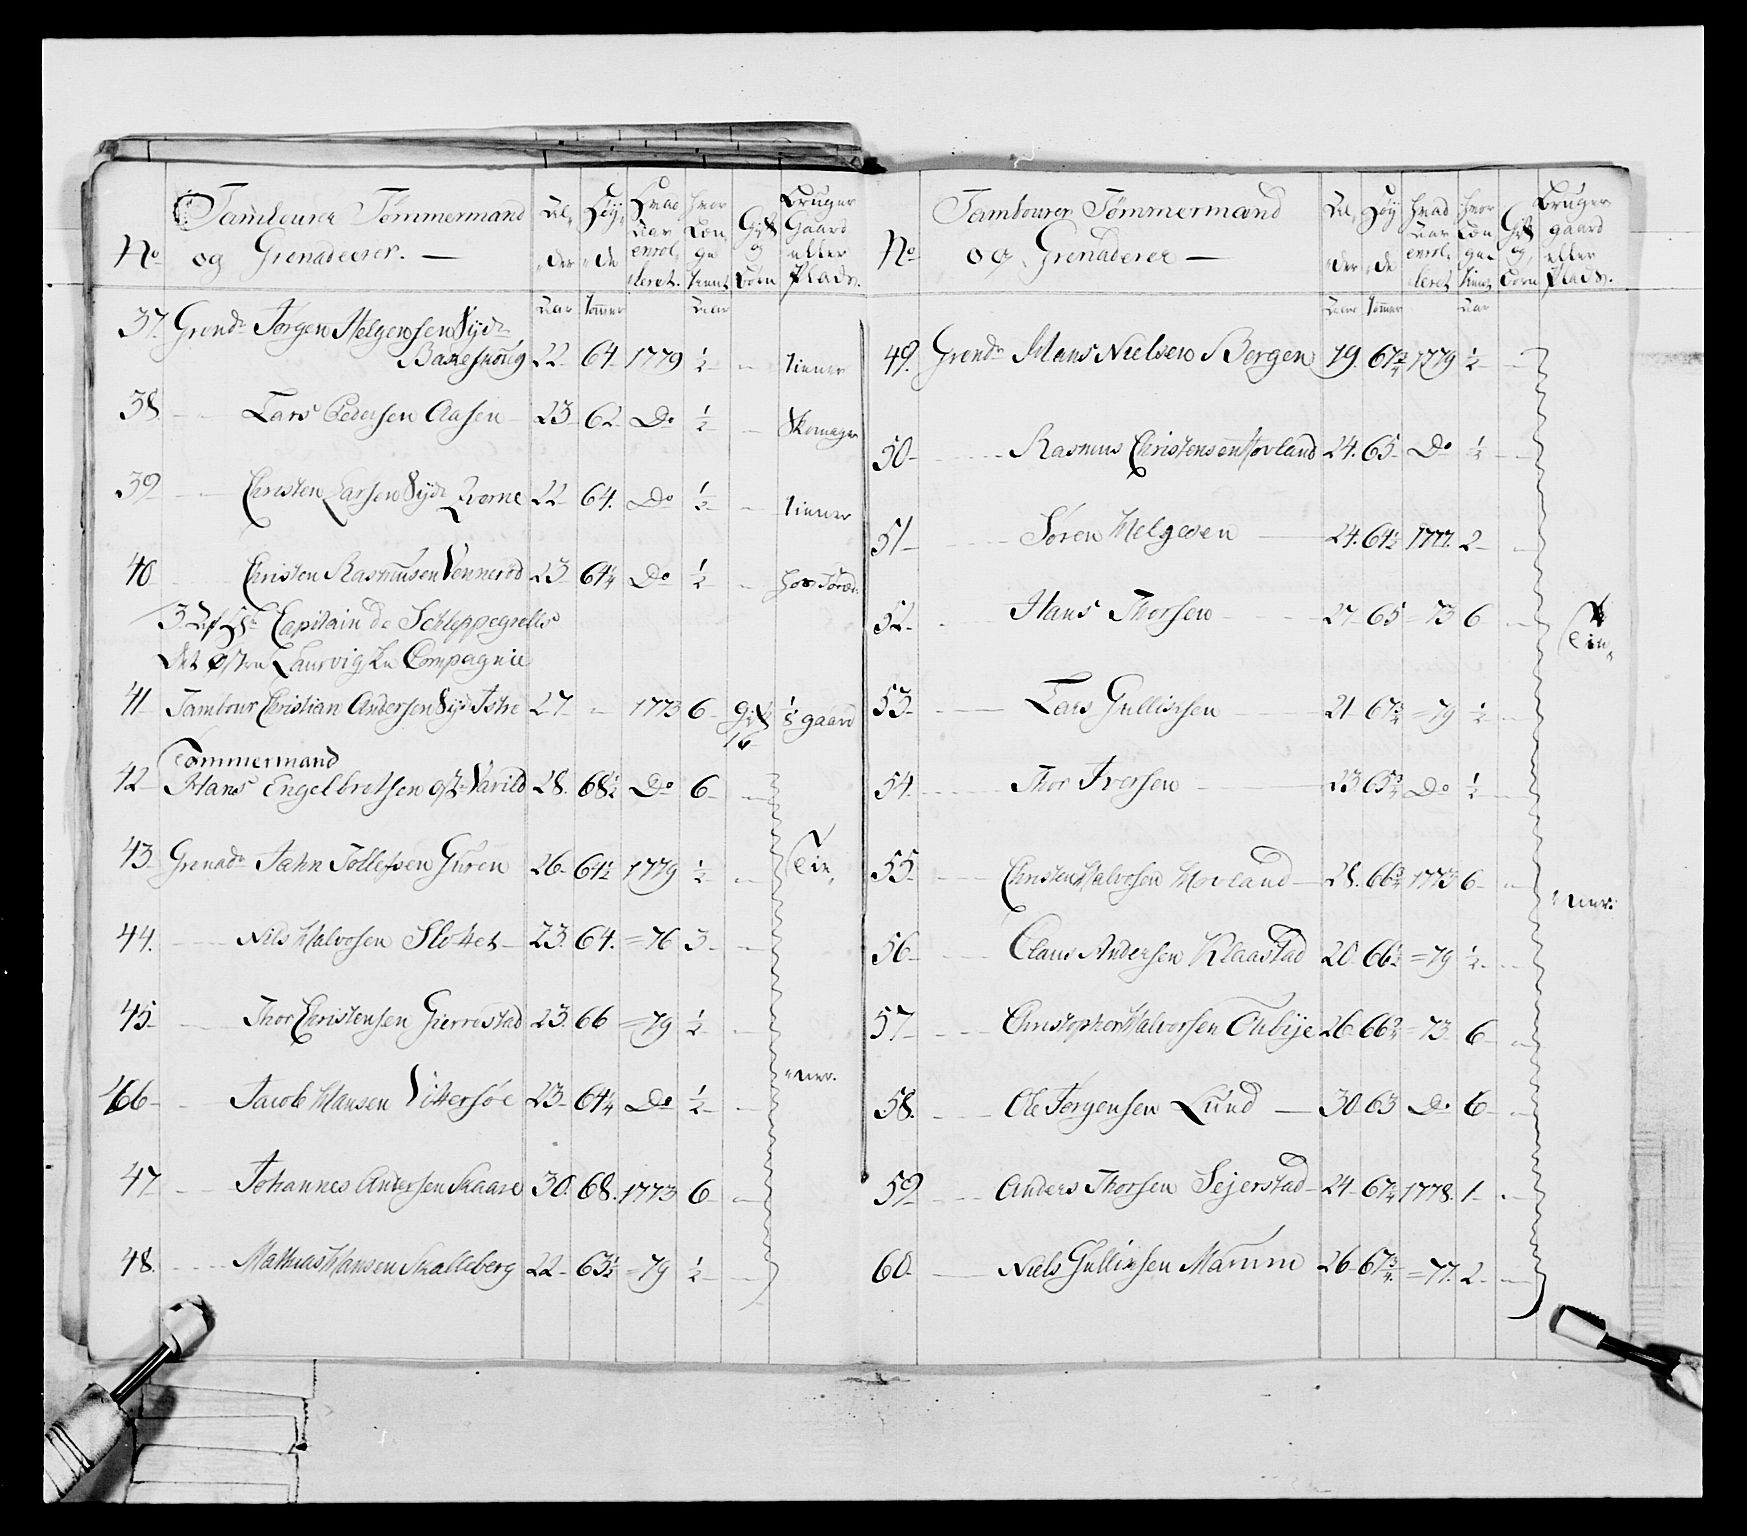 No
Tambourer Tømmermænd
og Grenadeerer. —
Al„ der
Høy„ de
Hvad Aar enrol„ leret.
Hvor Læn„ ge tient
Gift og Børn
Bruger Gaard eller Plads.
Aar Tommer Aar
37. Grend: Jørgen Helgensen
22 64 1779 1/2 — tiener
38 — Lars Pedersen Aasen 23 62 Do 1/2 — Skomager
39 — Christen Larsen 22 64. Do 1/2 — tiener
40 — Christen Rasmusen Vennerød 23 64 1/4 Do 1/2 —
Capitain de Schleppegrells
Det Laurvigske Compagnie
41 Tambour Christian Andersen 27 — 1773 6 gift 1b gaard
Tømmermand
42 Hans Engelbretsen Varild 28. 68 1/2 Do 6 —
43 Grenadr Jahn Tollefsen Guren 26 64 1/2 1779 1/2 — Tie„
44. — Nils Halvorsen Slottet 23. 64. = 76 3 —
45 — Thor Christensen Gierrestad 23. 66 = 79 1/2 —
46 — Jacob Hansen Vittersøe 23 64 1/4 Do 1/2 — „ner.
47 — Johannes Andersen Skaare 30. 68. 1773 6 —
48. — Mathias Hansen Skalleberg 22 63 1/2 = 79 1/2 —
No
Tambourer Tømmermænd
og Grenaderer —
Al„ der
Høy„ de
Hvad Aar enrol„ leret
Hvor Læn„ ge tient
Gift og Børn
Bruger gaard eller Plads.
Aar Tommer Aar
49. Grendr Hans Nielsen Bergen 19. 67 3/4 1779 1/2 —
50 — Rasmus Christensen Hovland 24. 65 Do 1/2 —
51 — Søren Helgesen — 24. 64 1/2 1777. 2 —
52 — Hans Thorsen — 27 65 = 73 6 — Tie„
53 — Lars Gullichsen — 21 67 3/4 = 79 1/2 —
54. — Thor Iversen — 23. 65 3/4 Do 1/2 —
55 — Christen Halvorsen Hovland — 28. 66 3/4 1773 6 — „ner.
56 — Claus Andersen Klaastad 20 66 1/2 = 79 1/2 —
57 — Christopher Halvorsen 26. = 73 6 —
58. — Ole Jørgensen Lund — 30 63 Do 6 —
59 — Anders Thorsen Sejerstad 24 67 1/4 1778. 1 —
60 — Niels Gullichsen 26 67 3/4 = 77. 2 —